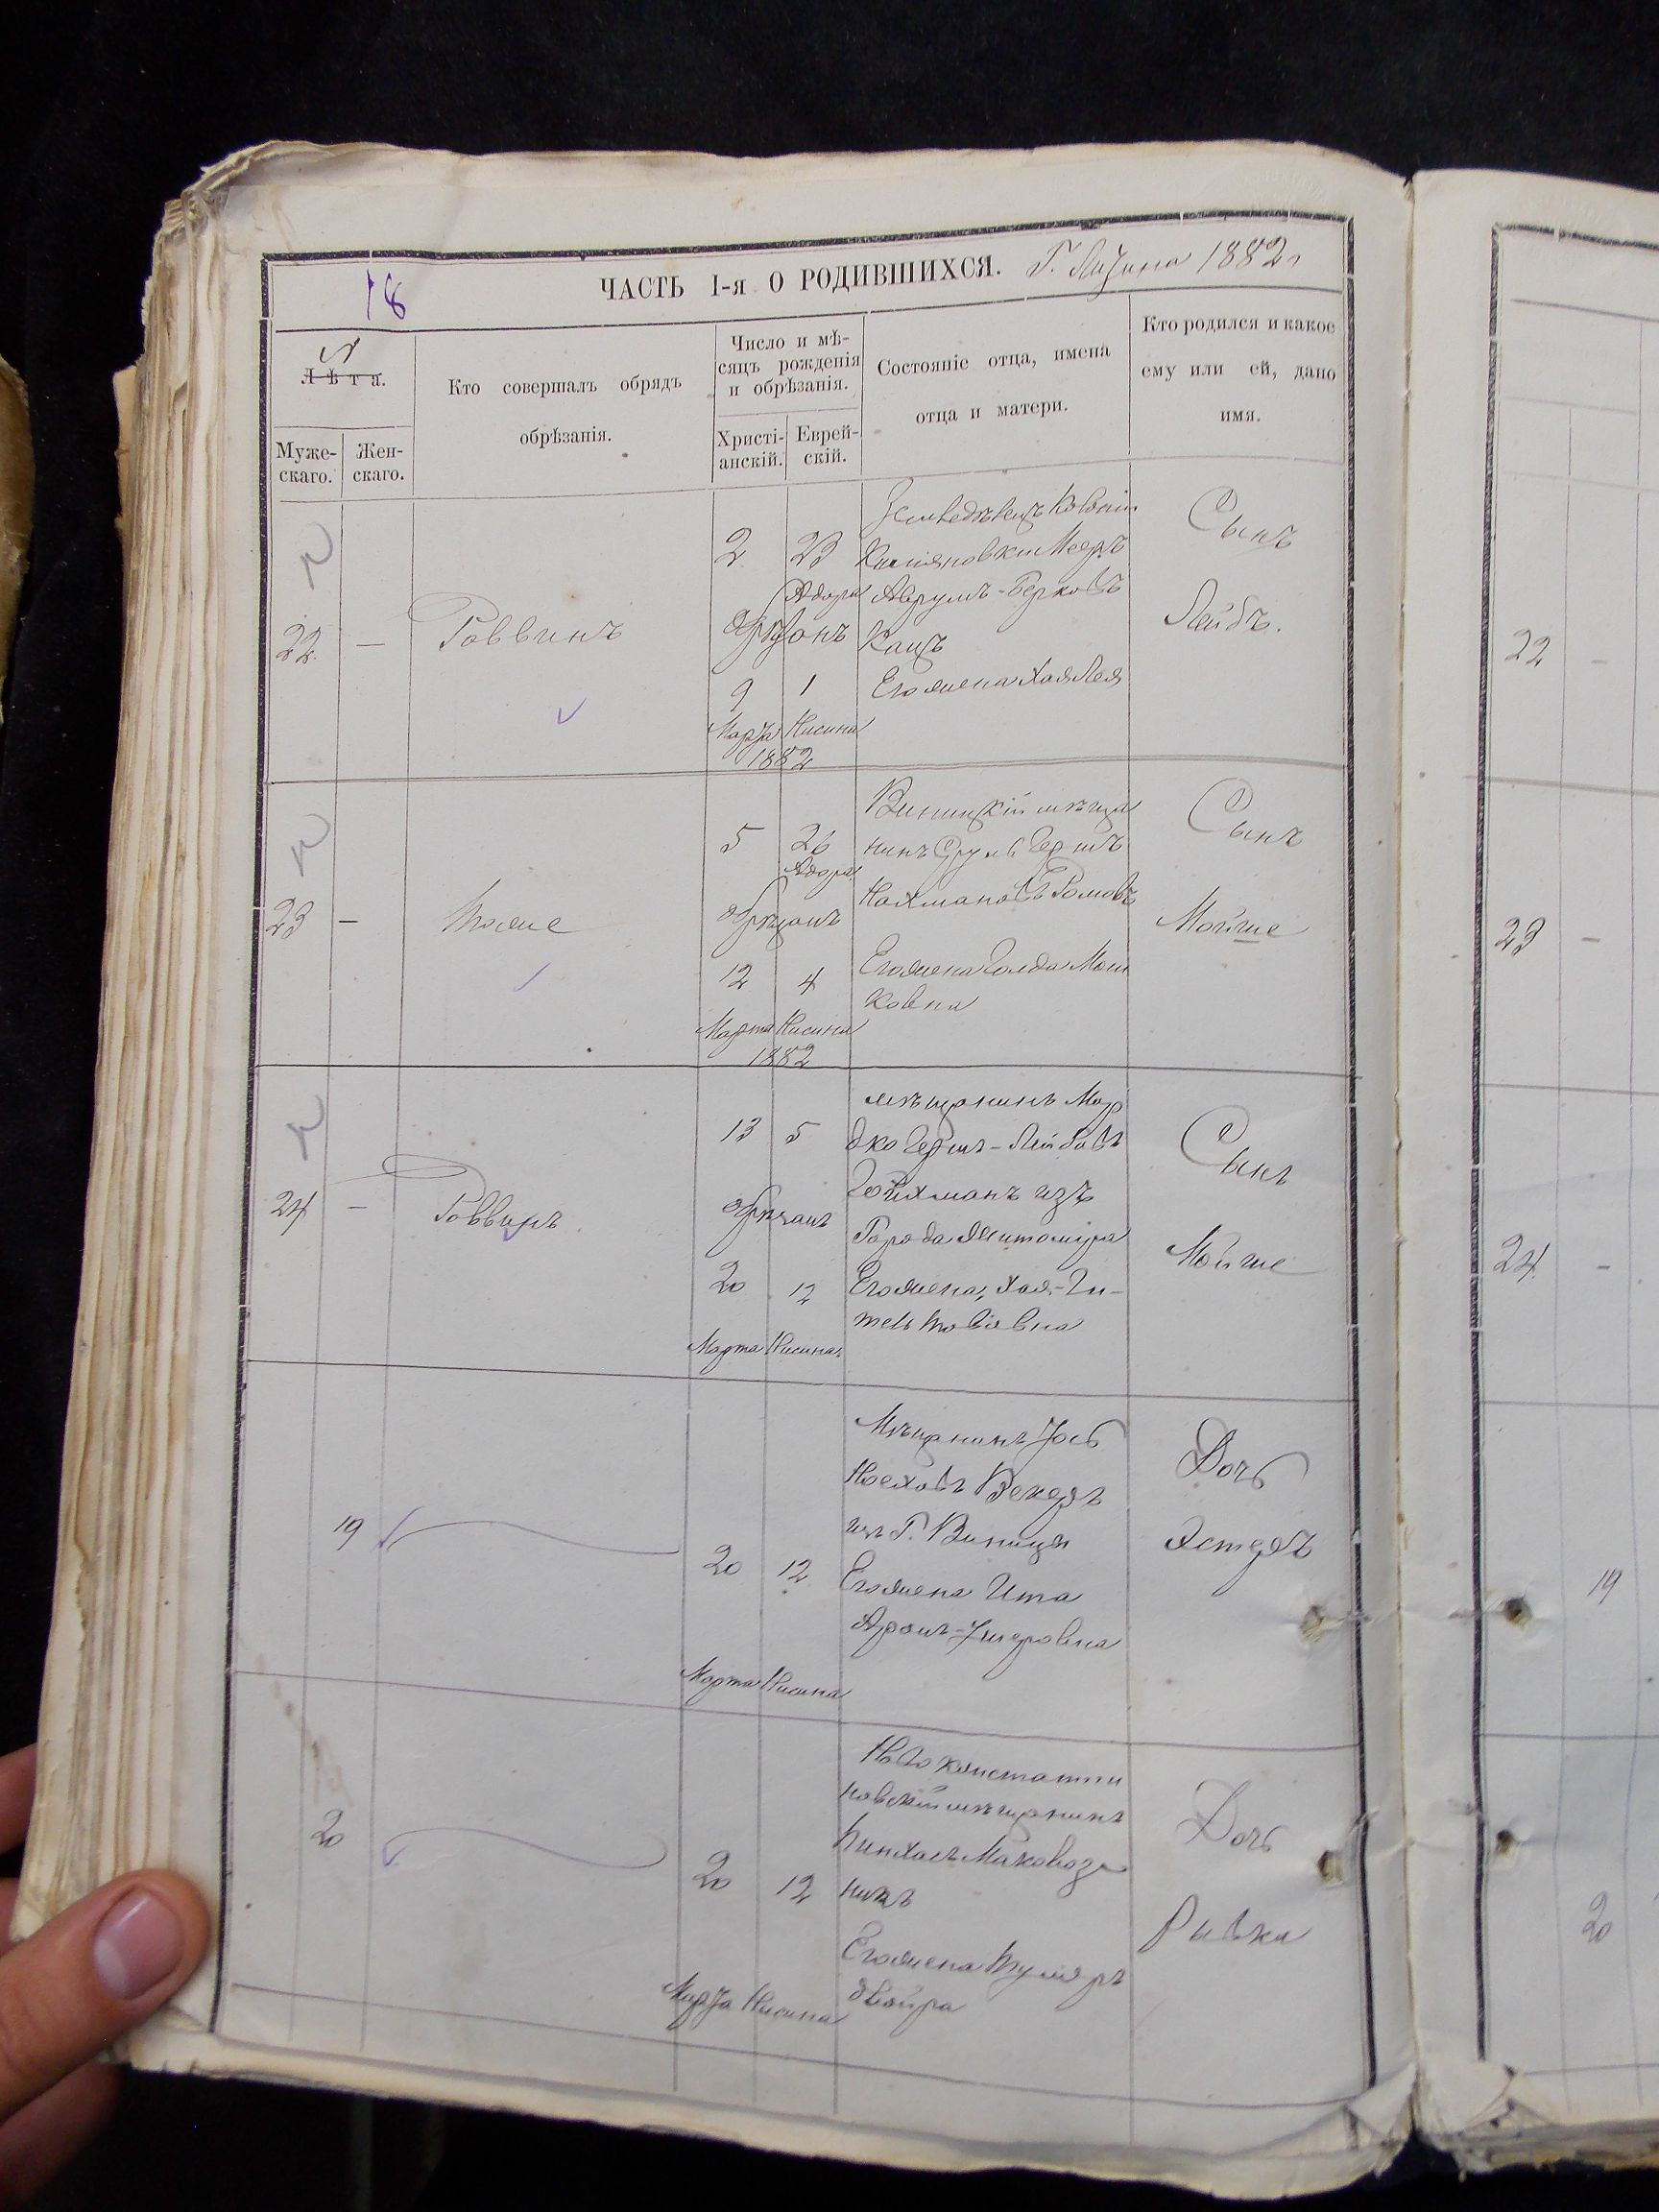 18
ЧАСТЬ I-я О РОДИВШИХСЯ. Г. 1882
№
Лѣта.
Муже-
скаго.
Жен-
скаго.
Кто совершалъ обрядъ
обрѣзанія.
Число и мѣ-
сяцъ рожденія
и обрѣзанія.
Христі-
анскій.
Еврей-
скій.
Состояніе отца, имена
отца и матери.
Кто родился и какое
ему или ей, дано
имя.
22
—
Раввинъ
2 23
Адара
обрѣзанъ
9 1
Марта Нисина
1882
Колоніи
Мееръ
Аврумъ-Берковъ
Кацъ
Его жена Хая Лея
Сынъ
Лейбъ.
23
—
Тоже
5 26
Адара
обрѣзанъ
12 4
Марта Нисина
1882
Виницкій мѣща
нинъ Сруль Гершъ
Нахмановъ
Его жена Голда Мош
ковна
Сынъ
Мойше
24
—
Раввинъ
13 5
обрѣзанъ
20 12
Марта Нисина
мѣщанинъ Мор
дко Гершъ-Лейбовъ
изъ
Города Житомира
Его жена Хая-Ги-
тель
Сынъ
Мойше
19
20 12
Марта Нисина
Мѣщанинъ Іось
Векеръ
изъ Г. Виницы
Его жена Ита
Аронъ-
Дочь
Эстеръ
20
20 12
Марта Нисина
Новоконстатти
новскій мѣщанинъ
Пинхасъ
никъ
Его жена
двойра
Дочь
Рывка
22
–
23
–
24
–
19
20